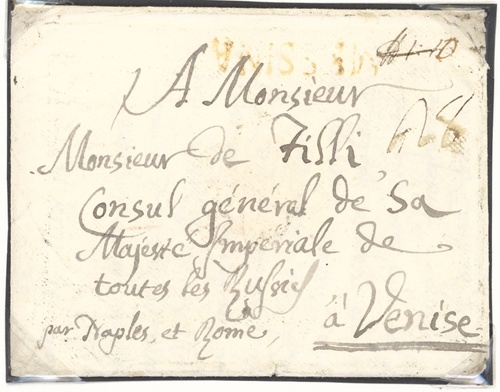 A Monsieur
Monsieur de Tilli
Consul général de Sa
Majesté Imperiale de
toutes les Russies
par Naples, et Rome,
à Venise